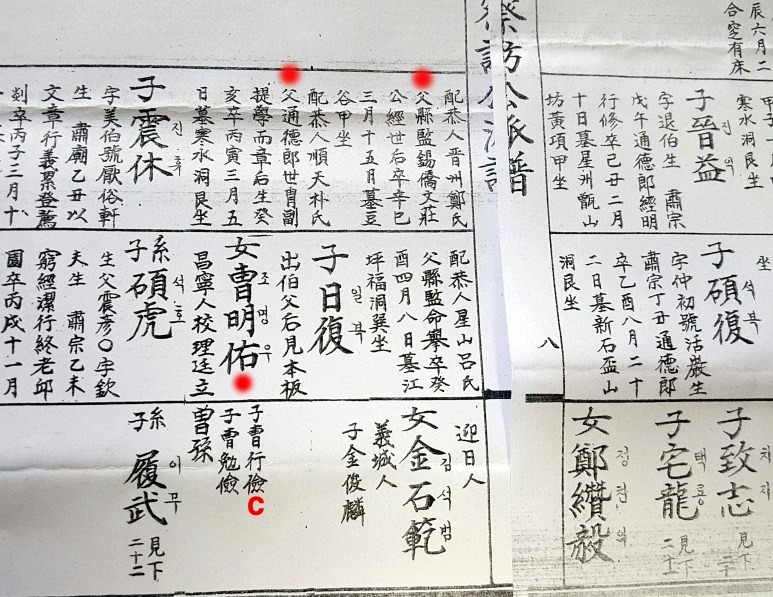 辰六月二
合窆有床
寒水洞艮坐
子晉益 진익
字退伯生 肅宗
戊午通德郎經明
行修卒己丑二月
十日墓星州甑山
坊黃項甲坐
察訪公派譜
八
配恭人晋州鄭氏
父縣監錫僑文莊
公經世后卒辛巳
三月十五日墓豆
谷甲坐
配恭人順天朴氏
父通德郎世胄副
提學而章后生癸
亥卒丙寅三月五
日墓寒水洞艮坐
子震休 진휴
字美伯號厭俗軒
生 肅廟乙丑以
文章行義累登薦
剡卒丙子三月十
坐
子碩復 석복
字仲初號活巖生
肅宗丁丑通德郎
卒乙酉八月二十
二日墓新石盃山
洞艮坐
配恭人星山呂氏
父縣監命擧卒癸
酉四月八日墓江
坪福洞巽坐
子日復 일복
出伯父后見本板
女曺明佑 조명우
昌寧人校理廷立
曾孫
系子碩虎 석호
生父震彦○字欽
夫生 肅宗乙未
窮經潔行終老邱
園卒丙戌十一月
子致志 치지 見下
子宅龍 택룡 見下
女鄭纘毅 정찬의
迎日人
女金石範 김석범
義城人
子金俊麟
子曺行儉
C
子曺勉儉
系子履武 이무 見下二十二